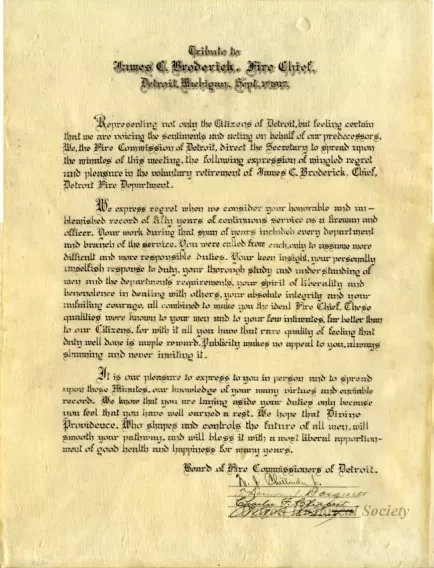 Tribute to
James C. Broderick, Fire Chief,
Detroit, Michigan, Sept. 1st 1917.
Representing not only the Citizens of Detroit, but feeling certain
that we are voicing the sentiments and acting on behalf of our predecessors,
We, the Fire Commission of Detroit, direct the Secretary to spread upon
the minutes of this meeting, the following expression of mingled regret
and pleasure in the voluntary retirement of James C. Broderick, Chief,
Detroit Fire Department.
We express regret when we consider your honorable and un-
blemished record of fifty years of continuous service as a fireman and
officer. Your work during that span of years included every department
and branch of the service. You were called from each, only to assume more
difficult and more responsible duties. Your keen insight, your personally
unselfish response to duty, your thorough study and understanding of
men and the department's requirements, your spirit of liberality and
benevolence in dealing with others, your absolute integrity and your
unfailing courage, all combined to make you the ideal Fire Chief. These
qualities were known to your men and to your few intimates, far better than
to our Citizens, for with it all you have that rare quality of feeling that
duty well done is ample reward. Publicity makes no appeal to you, always
shunning and never inviting it.
It is our pleasure to express to you in person and to spread
upon these Minutes, our knowledge of your many virtues and enviable
record. We know that you are laying aside your duties only because
you feel that you have well earned a rest. We hope that Divine
Providence, Who shapes and controls the future of all men, will
smooth your pathway, and will bless it with a most liberal apportion-
ment of good health and happiness for many years.
Board of Fire Commissioners of Detroit.
Charles F.
Society